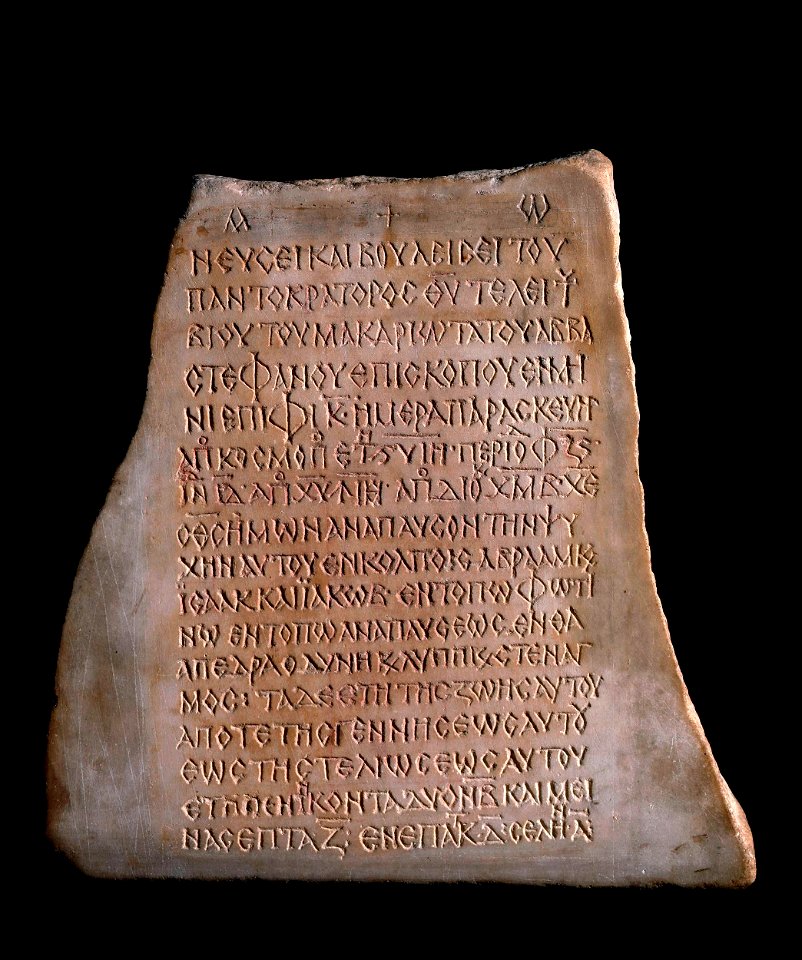 Α + Ω
ΝΕΥΣΕΙ ΚΑΙ ΒΟΥΛΕΙΣΕΙ ΤΟΥ
ΠΑΝΤΟΚΡΑΤΟΡΟΣ ΕΝ ΤΕΛΕΙ Τȣ
ΒΙΟΥ ΤΟΥ ΜΑΚΑΡΙΩΤΑΤΟΥ ΑΒΒΑ
ΣΤΕΦΑΝΟΥ ΕΠΙΣΚΟΠΟΥ ΕΝ ΜΗ
ΝΙ ΕΠΙΦΙ Κ· ΗΜΕΡΑ ΠΑΡΑΣΚΕΥΗ
ΑΠΟ ΚΟΣΜΟΠ ΕΤ ΠΕΡΙΟ ΦΞϚ
ΙΝΔ ΙΔ ΑΠΟ ΧΥ ΑΠΟ ΔΙΟ ΧΜΒ ΧΕ
Ο ΘΣ ΗΜΩΝ ΑΝΑΠΑΥΣΟΝ ΤΗΝ ΨΥ
ΧΗΝ ΑΥΤΟΥ ΕΝ ΚΟΛΠΟΙΣ ΑΒΡΑΑΜ Κ
ΙΣΑΑΚ ΚΑΙ ΙΑΚΩΒ· ΕΝ ΤΟΠΩ ΦΩΤΙ
ΝΩ ΕΝ ΤΟΠΩ ΑΝΑΠΑΥΣΕΩΣ· ΕΝΘΑ
ΑΠΕΔΡΑ ΟΔΥΝΗ Κ ΛΥΠΠΙ Κ ΣΤΕΝΑΓ
ΜΟΣ: ΤΑ ΔΕ ΕΤΗ ΤΗΣ ΖΩΗΣ ΑΥΤΟΥ
ΑΠΟ ΤΕ ΤΗΣ ΓΕΝΝΗΣΕΩΣ ΑΥΤȣ
ΕΩΣ ΤΗΣ ΤΕΛΙΩΣΕΩΣ ΑΥΤΟΥ
ΕΤΗ ΕΝΗΚΟΝΤΑ ΔΥΟ ΚΑΙ ΜΕΙ
ΝΑΣ ΕΠΤΑ Ζ· ΕΝ ΕΠΑΚ Δ· ΣΕΛΗ Α